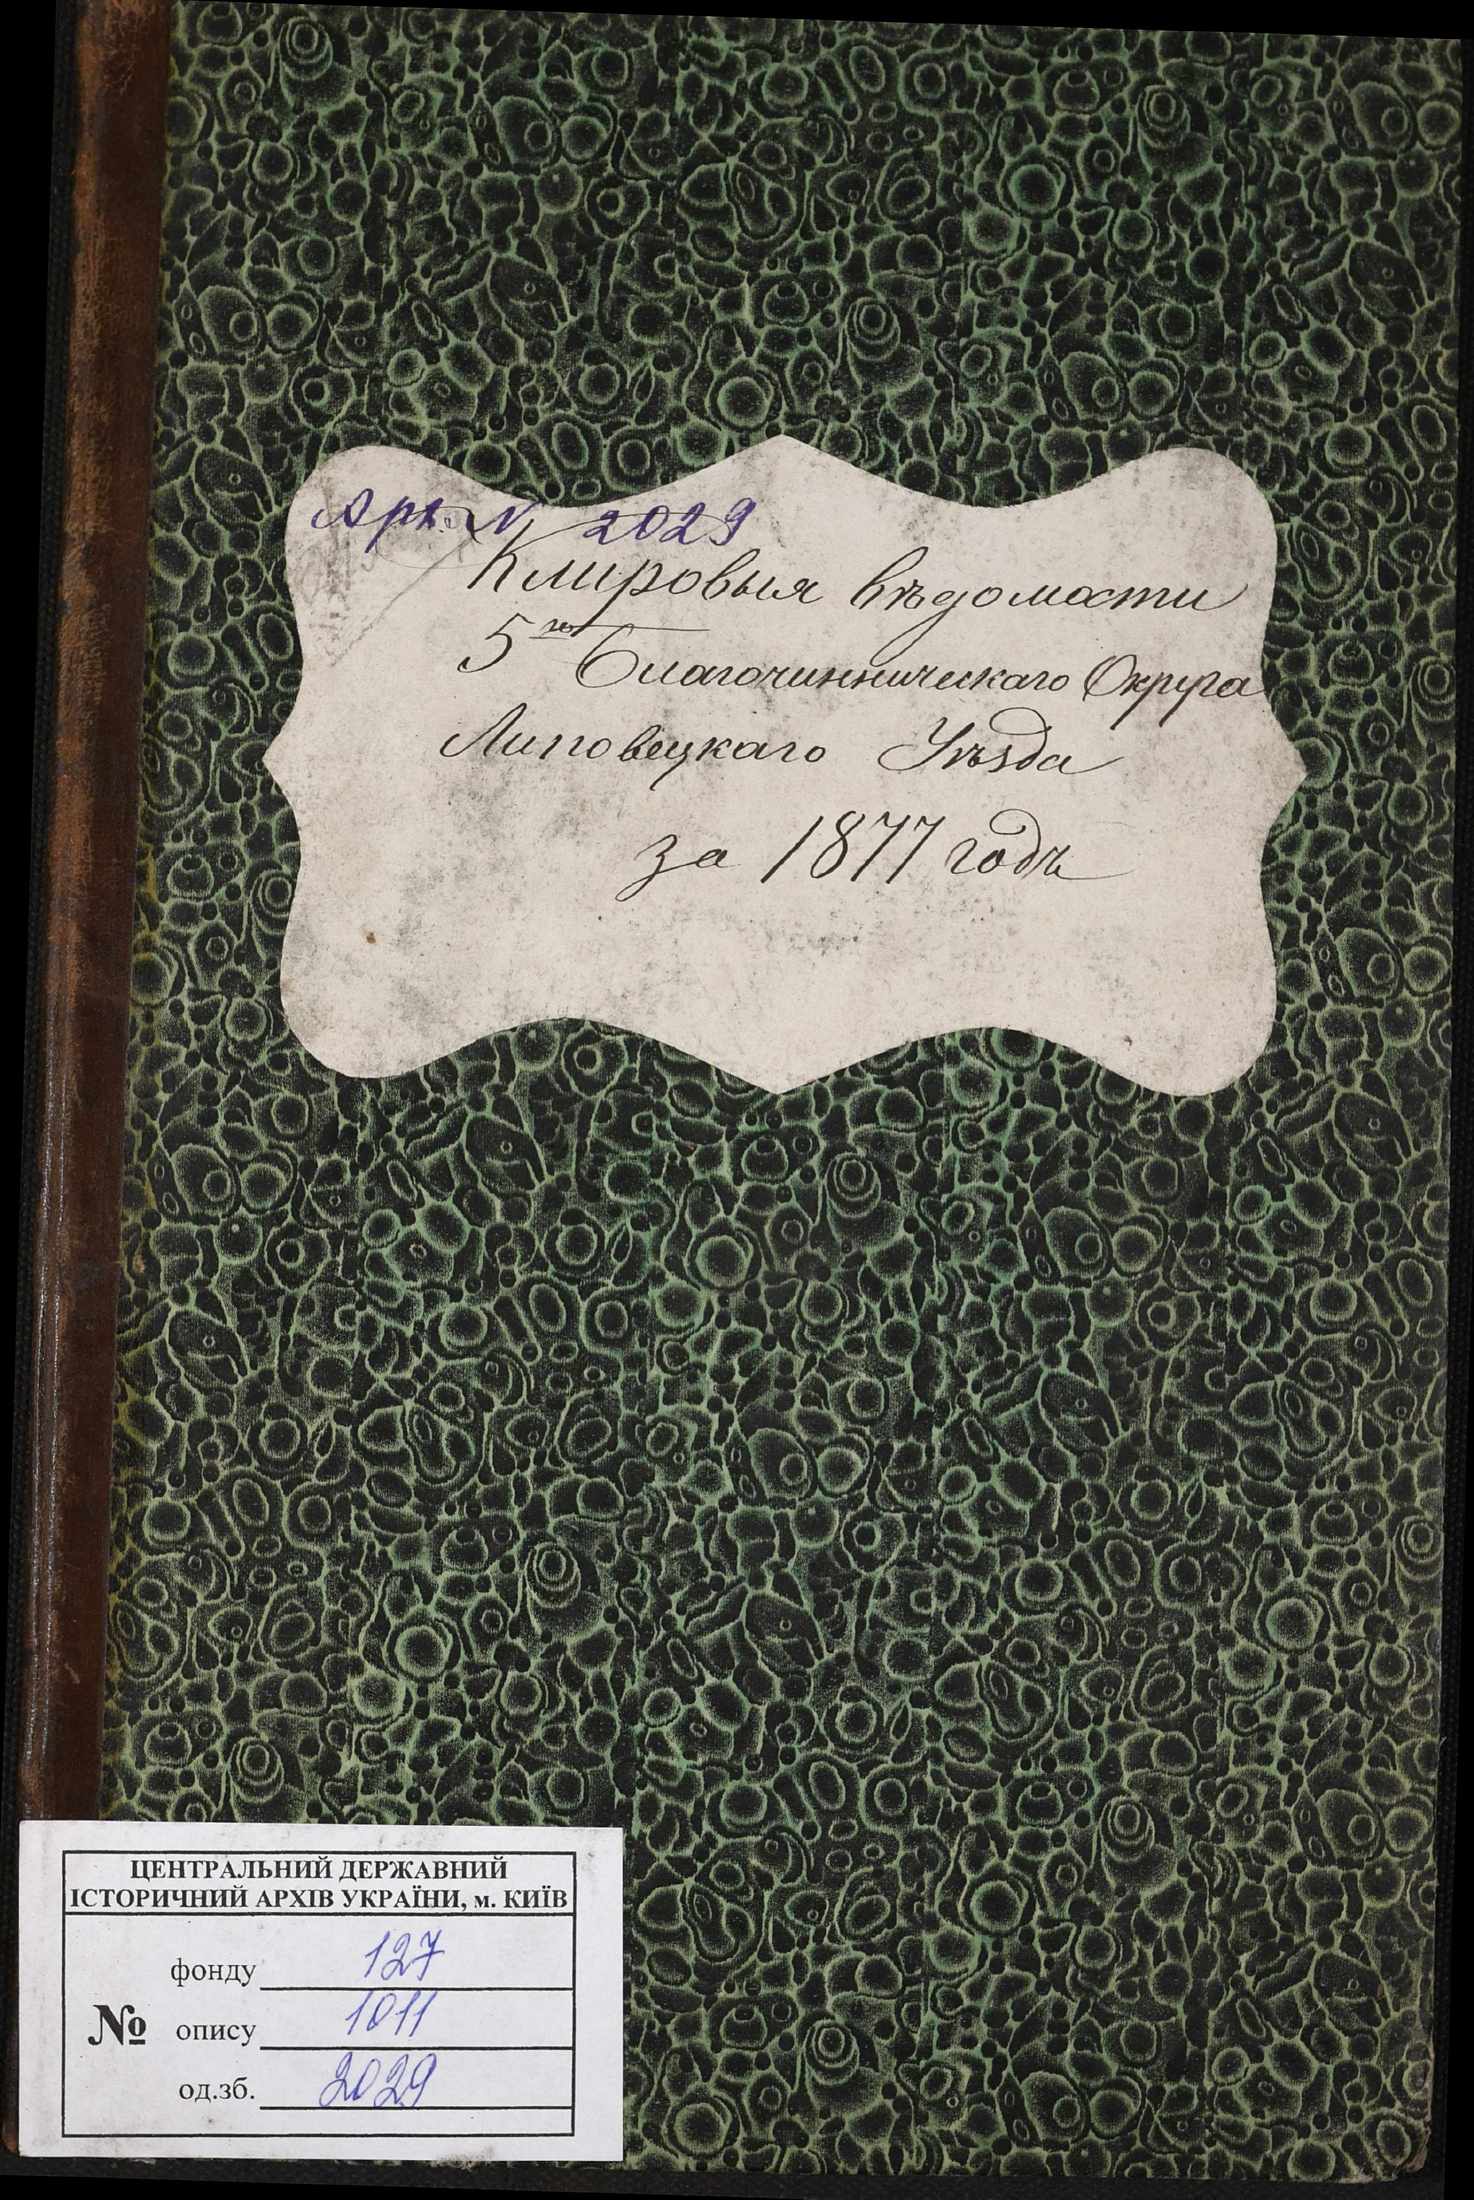 Арх. № 2029
Клировыя вѣдомости
5го Благочинническаго Округа
Липовецкаго Уѣзда
за 1877 годъ
ЦЕНТРАЛЬНИЙ ДЕРЖАВНИЙ
ІСТОРИЧНИЙ АРХІВ УКРАЇНИ, м. КИЇВ
фонду 127
№ опису 1011
од.зб. 2029